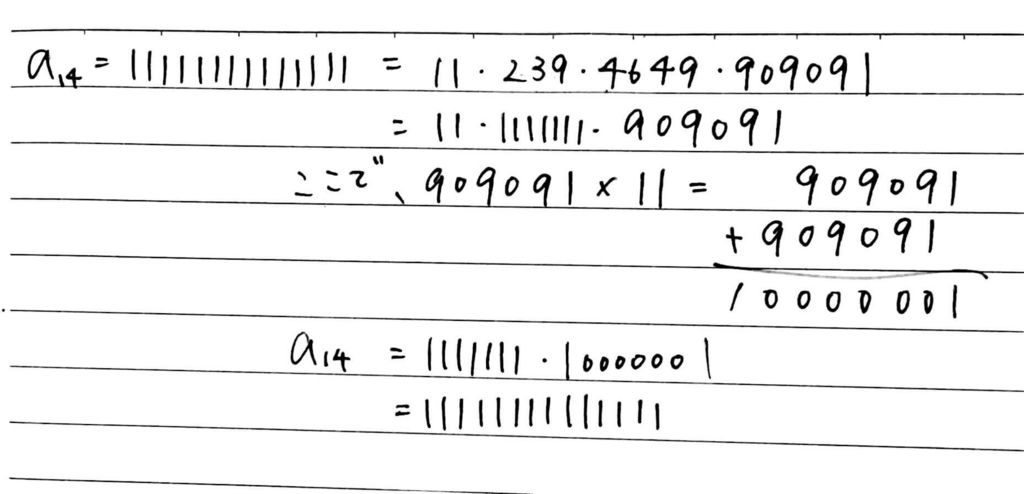 a₁₄ = 11111111111111 = 11・239・4649・909091
= 11・1111111・909091
ここで、909091 × 11 = 909091
+ 909091
10000001
a₁₄ = 1111111・10000001
= 11111111111111